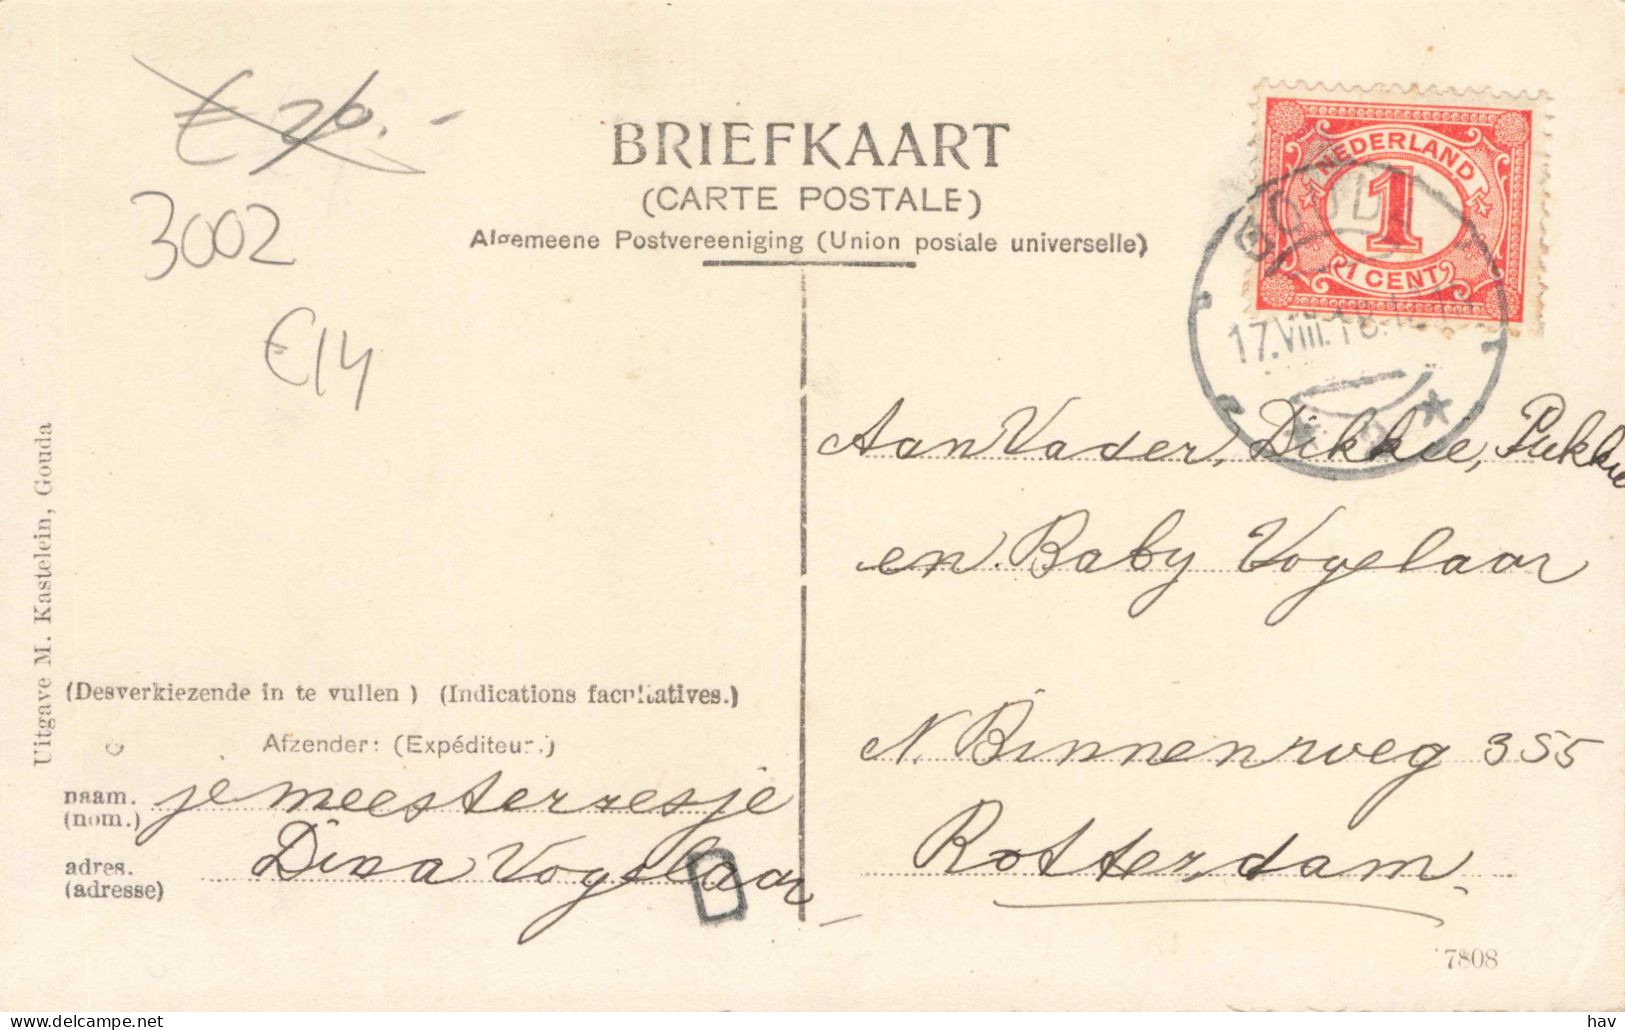 € 26.-
3002
€14
BRIEFKAART
(CARTE POSTALE)
Algemeene Postvereeniging (Union postale universelle)
NEDERLAND
1
1 CENT
GOUDA
17.VIII.18.
Aan Vader, Dikkie, Pukkie
en Baby Vogelaar
N. Binnenweg 355
Rotterdam.
Uitgave M. Kastelein, Gouda
(Desverkiezende in te vullen) (Indications facultatives.)
Afzender: (Expéditeur.)
naam. je meesterresje
(nom.)
adres. Dina Vogelaar
(adresse)
7808
hav